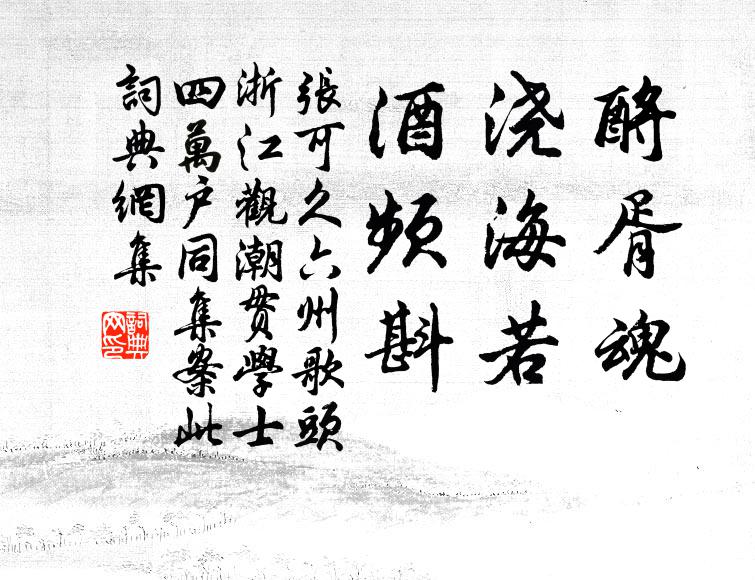 酹胥魂
浇海若
酒频斟
張可久六州歌頭
浙江觀潮貫學士
四萬户同集案此
詞典網集
詞典网印